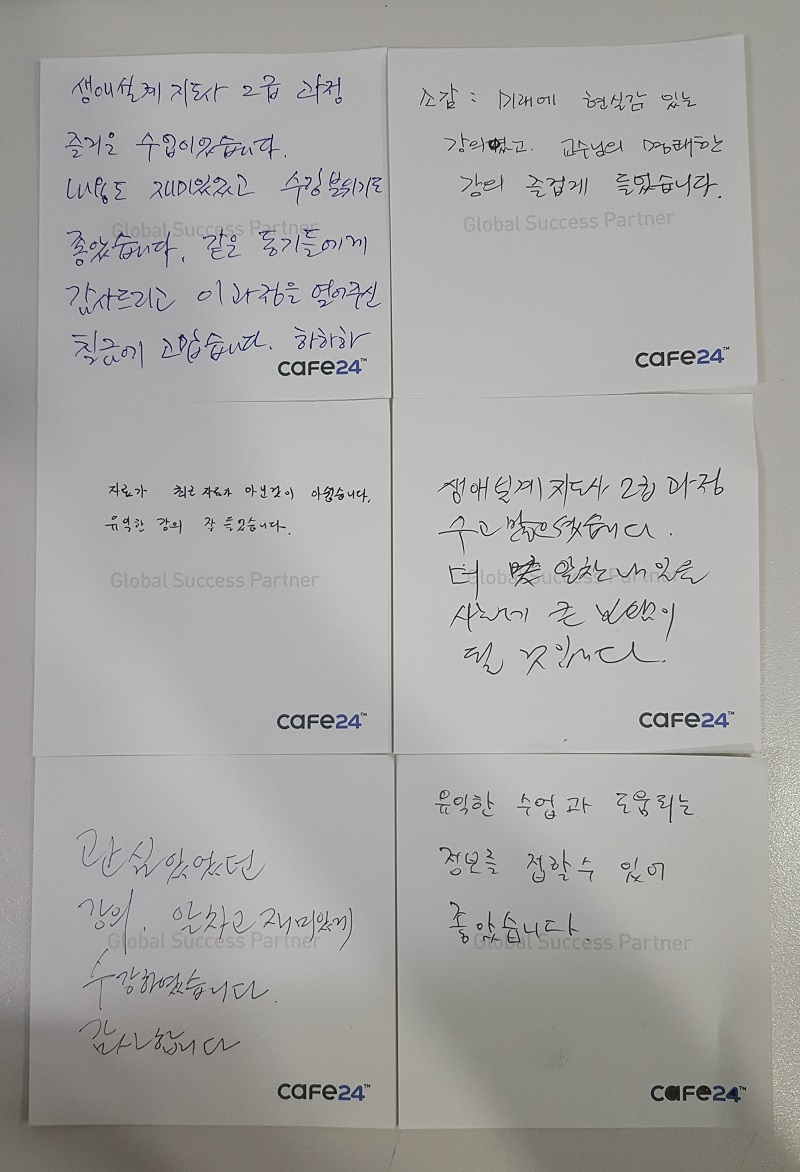 생애설계 지도사 2급 과정
즐거운 수업이었습니다.
내용도 재미있었고 수강 분위기도
Global Success Partner
좋았습니다. 같은 동기들에게
감사드리고 이 과정을 열어주신
에 고맙습니다. 하하하
CAFE24™
소감 : 미래에 현실감 있는
강의였고. 교수님의 명쾌한
강의 즐겁게 들었습니다.
Global Success Partner
CAFE24™
자료가 최근 자료가 아닌것이 아쉽습니다.
유익한 강의 잘 들었습니다.
Global Success Partner
CAFE24™
생애설계 지도사 2급 과정
수고 많으셨습니다.
더 알찬 내일을
Global Success Partner
사는데 큰 보탬이
될 것입니다.
CAFE24™
관심있었던
강의. 알차고 재미있게
Global Success Partner
수강하였습니다.
감사합니다
CAFE24™
유익한 수업과 도움되는
정보를 접할수 있어
좋았습니다.
Global Success Partner
CAFE24™